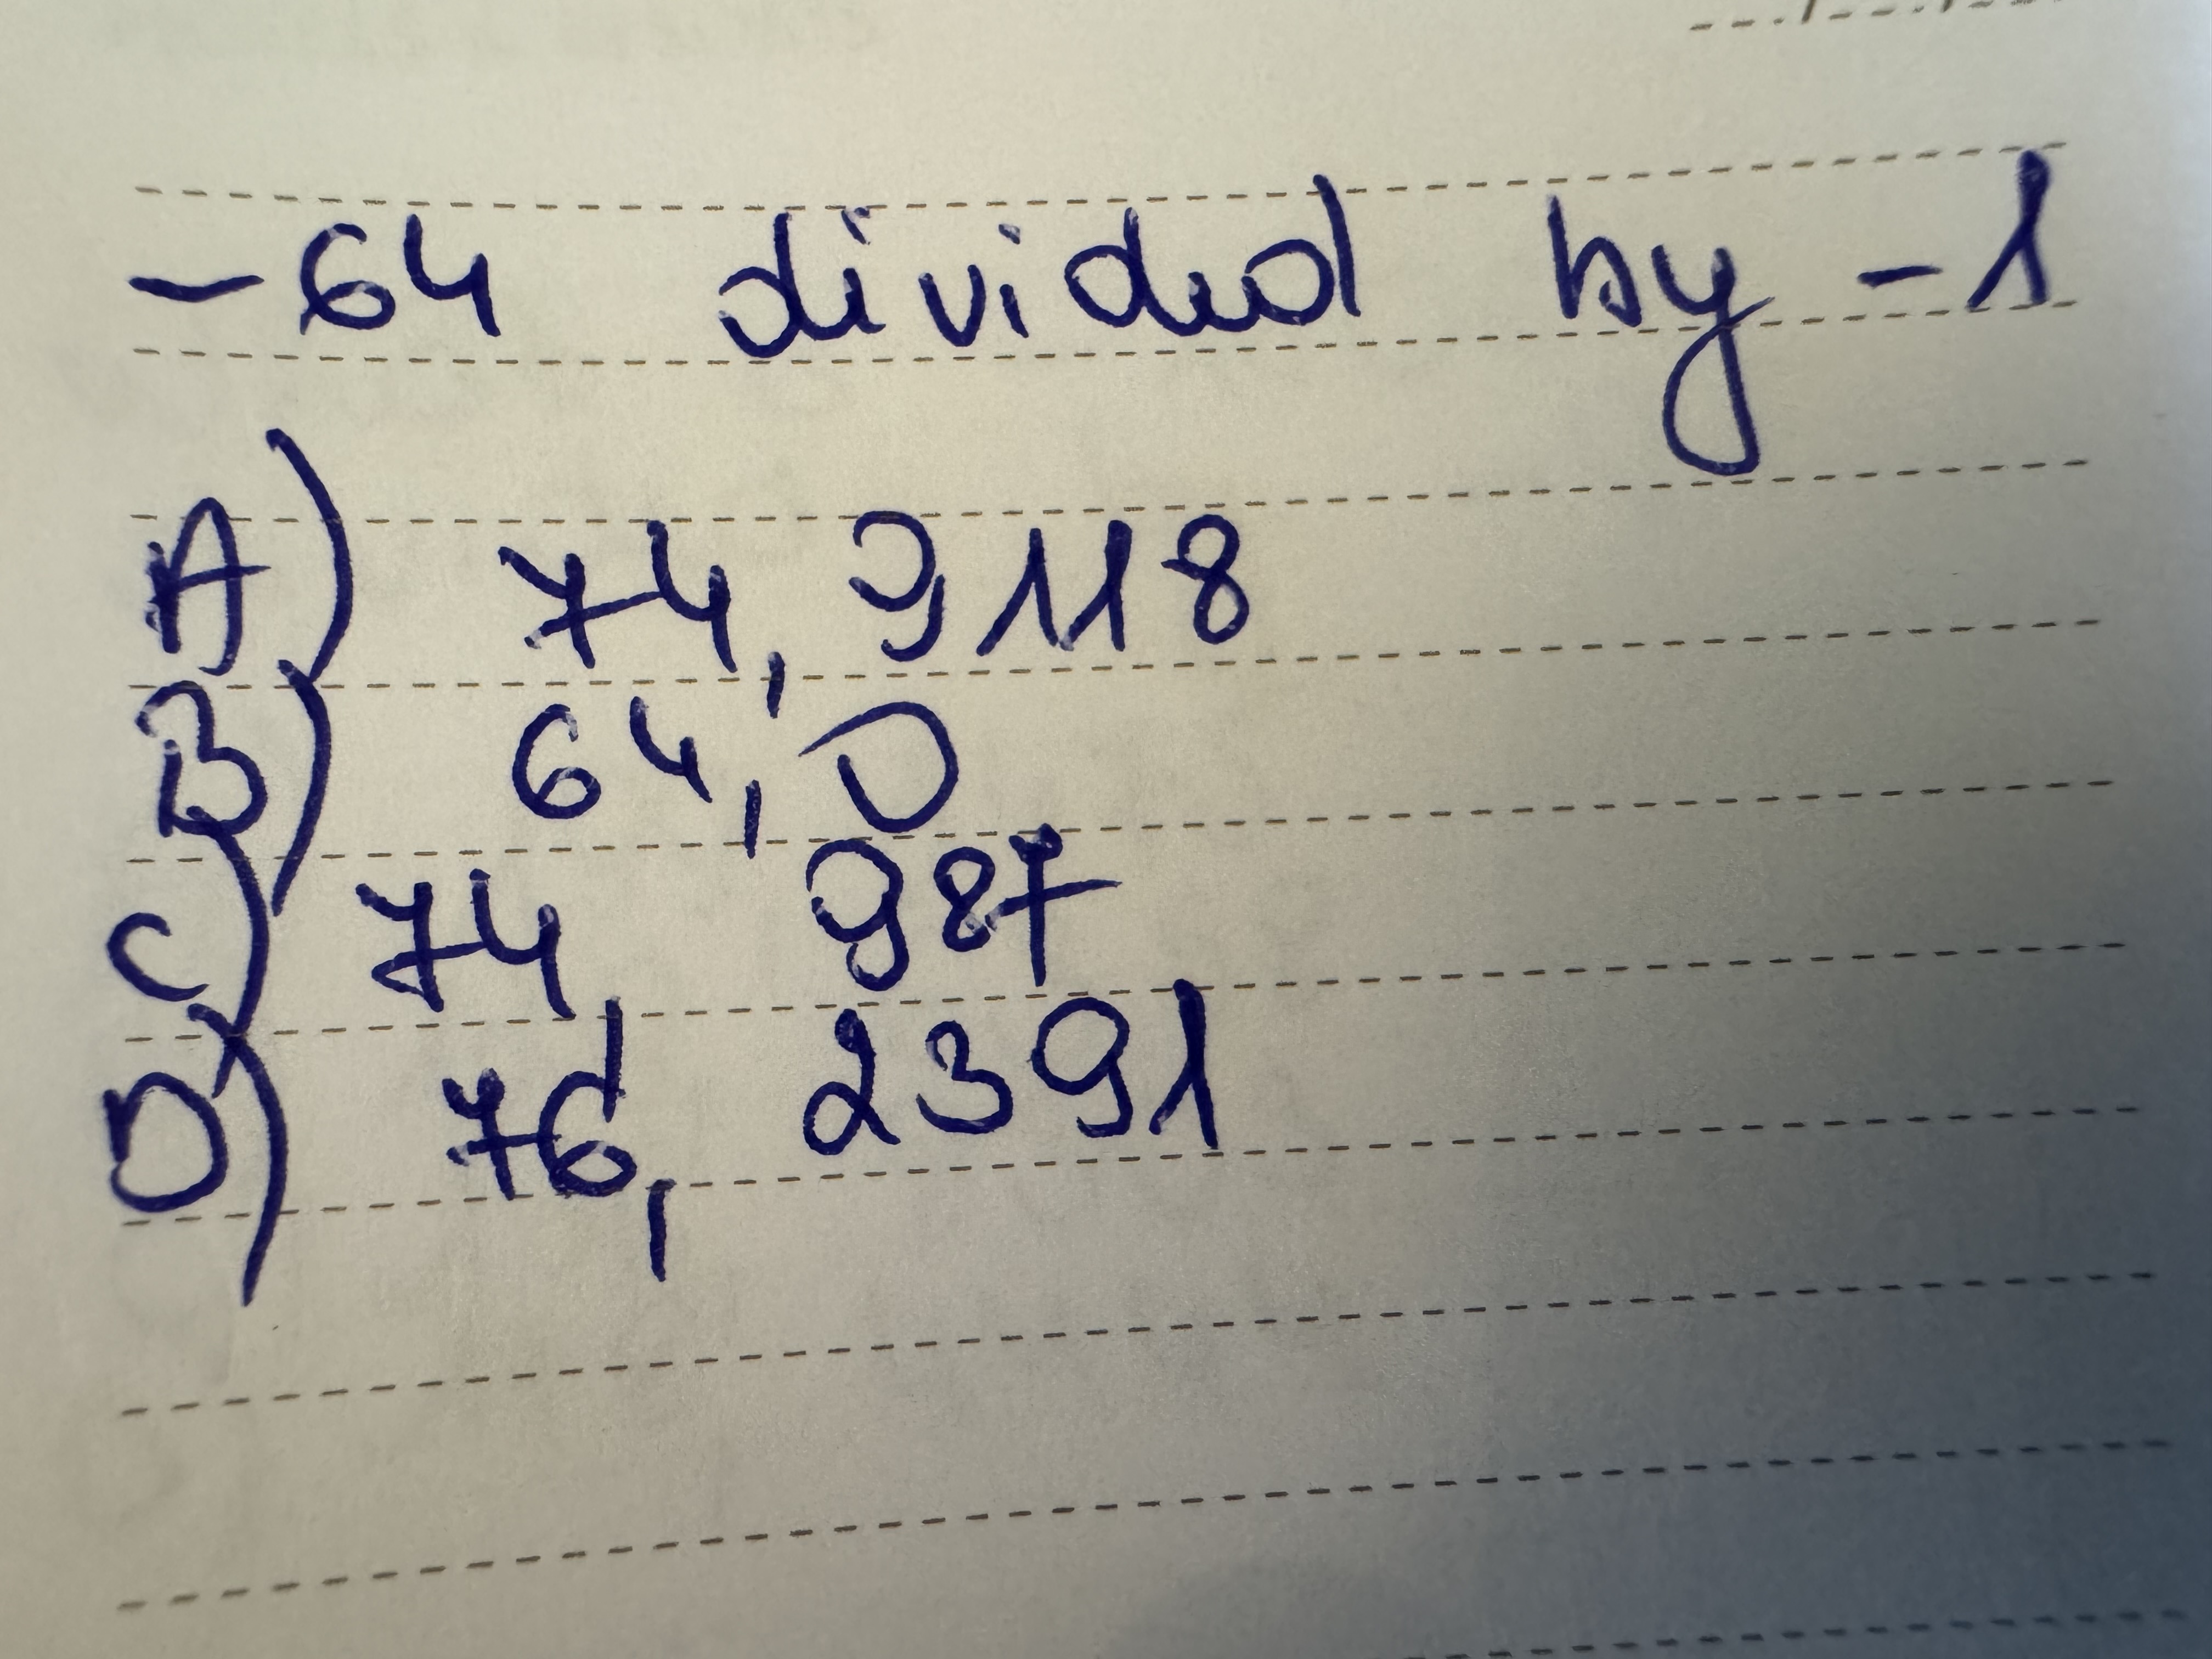 -64 divided by -1
A) 74,9118
B) 64,0
C) 74,987
D) 76,2391